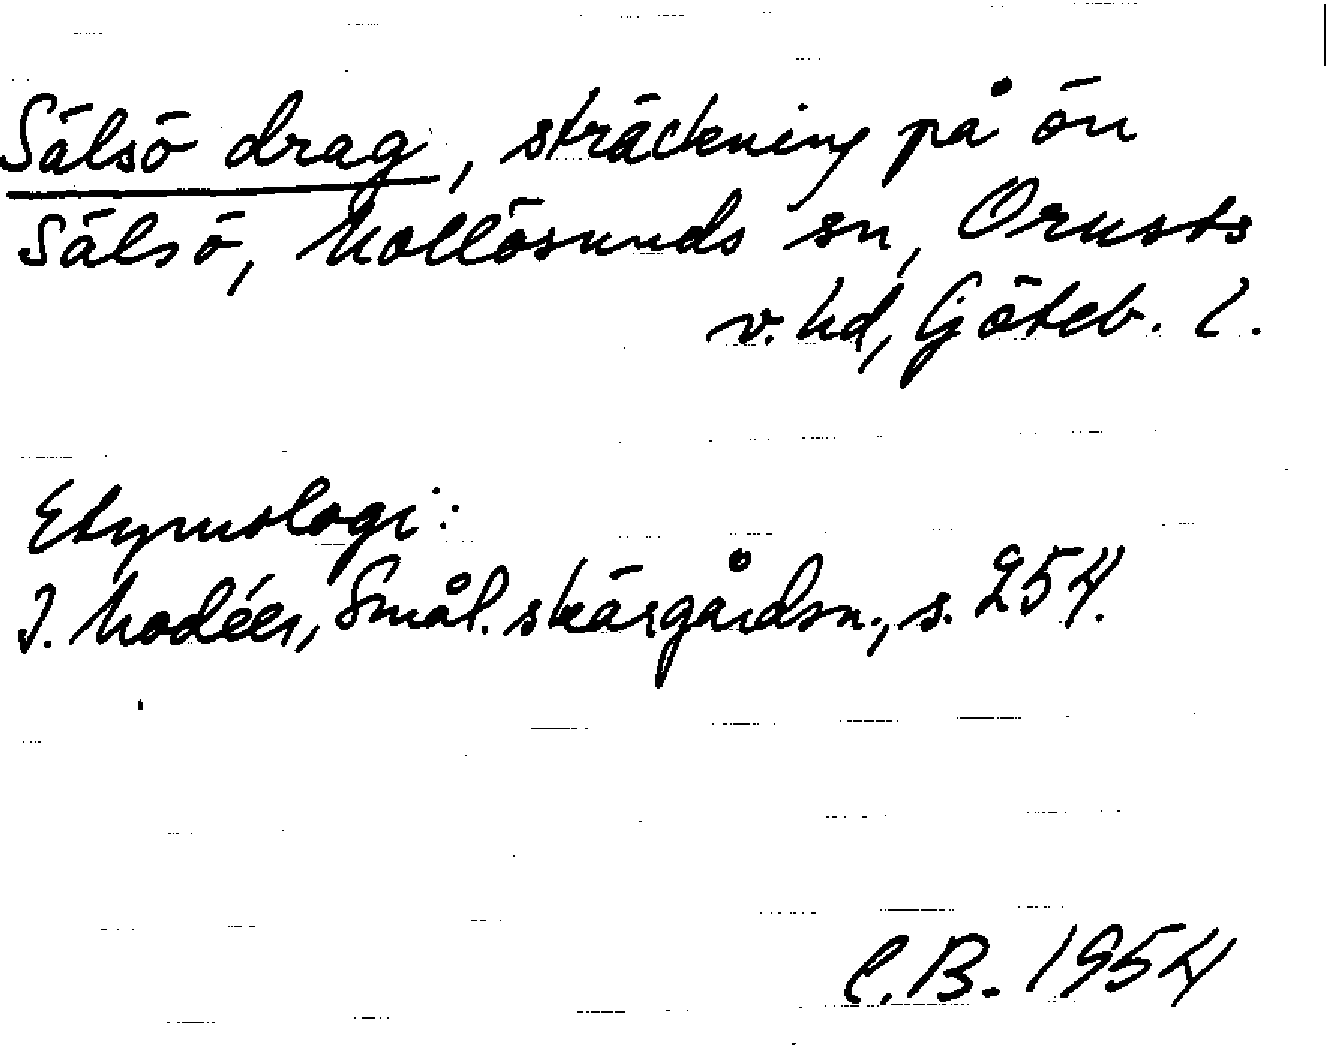 Sälsö drag, sträckning på ön
Sälsö, Mollösunds sn, Orusts
v. hd, Göteb. l.
Etymologi:
I. Modéer, Smål. skärgårdsn., s. 254.
C.B. 1954